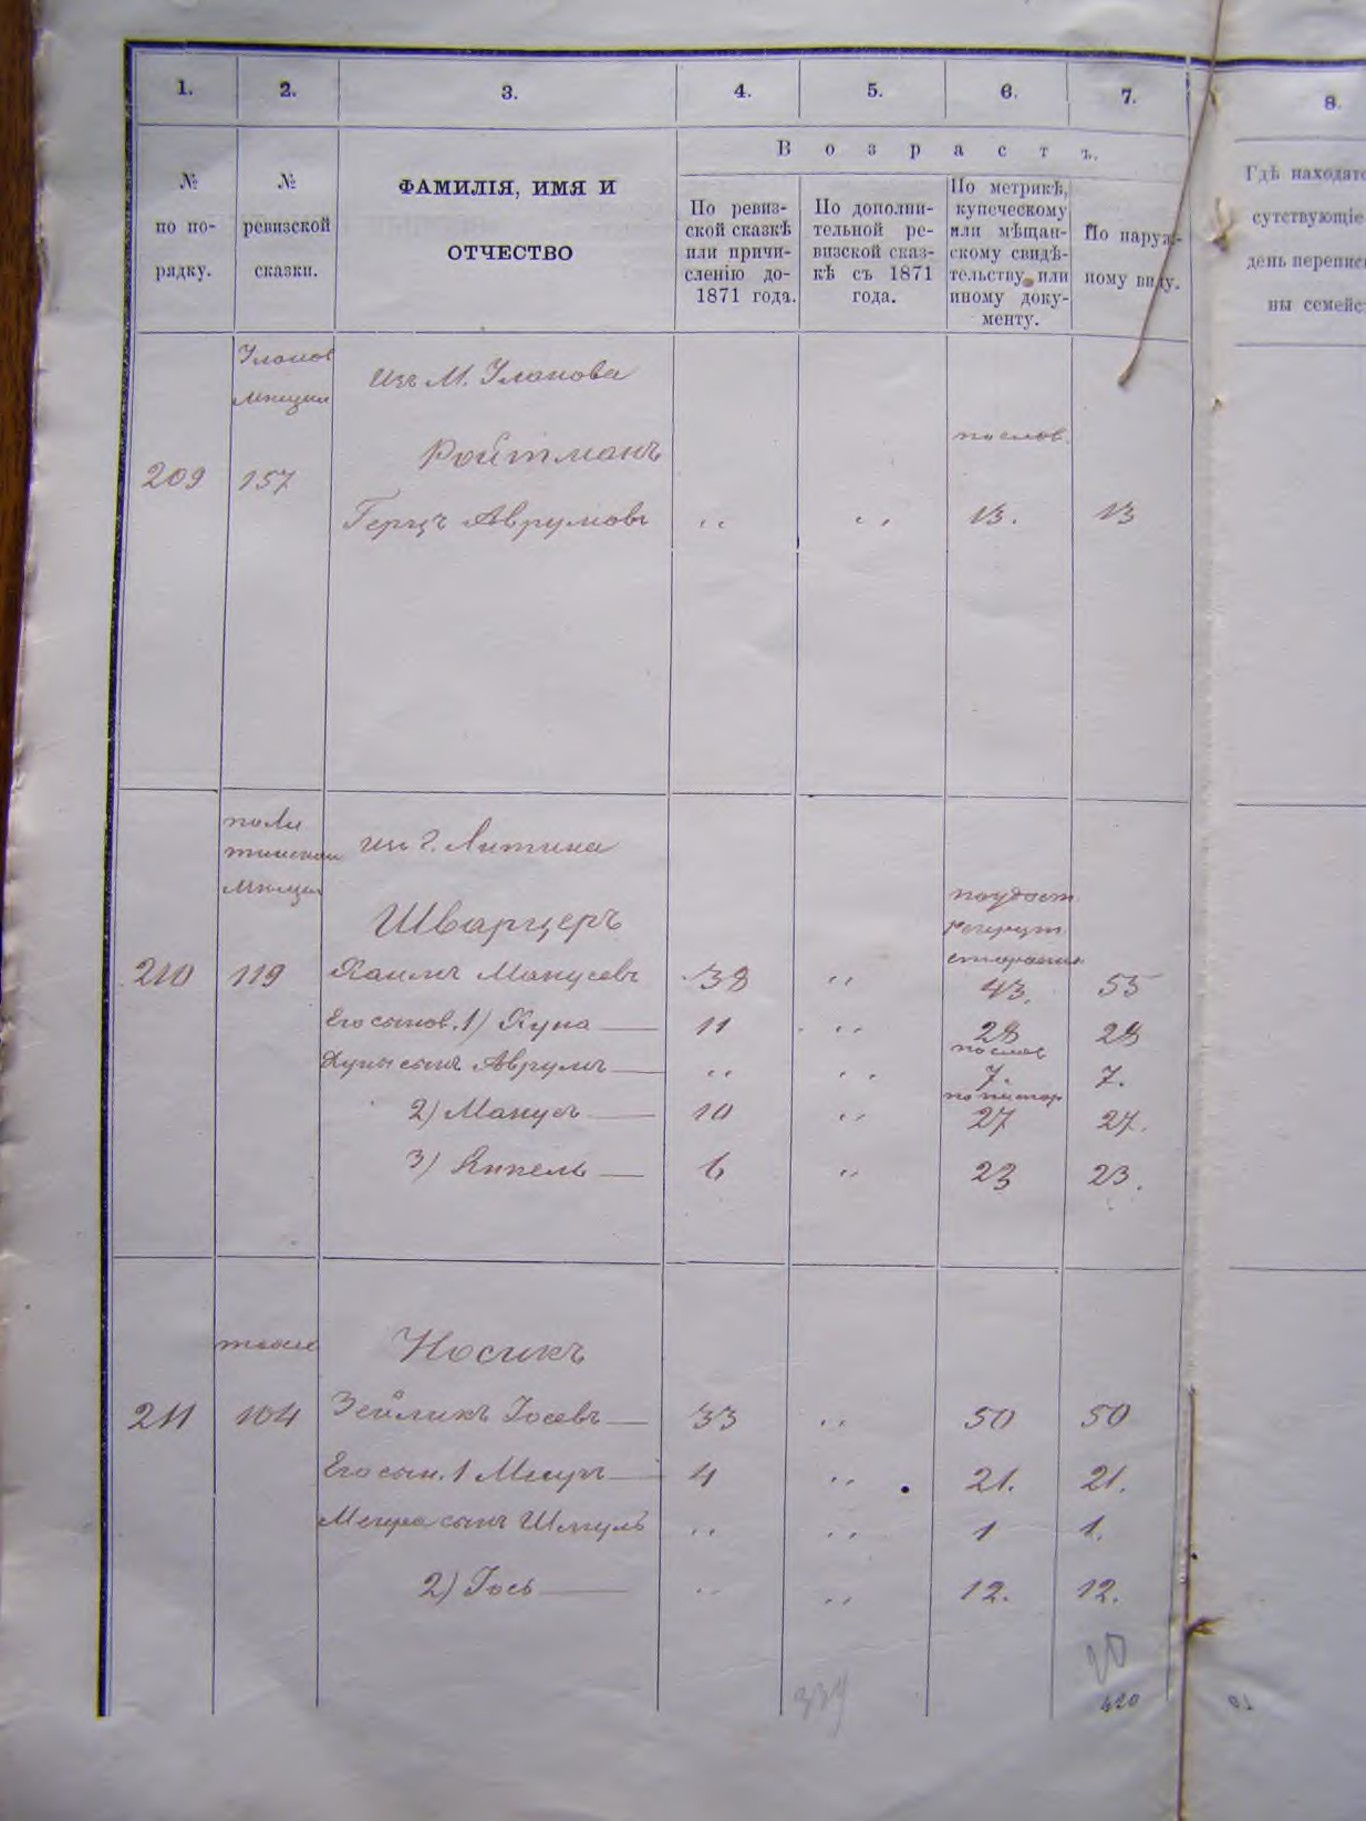 1. 2. 3. 4. 5. 6. 7. 8.
В о з р а с т ъ.
№
по по-
рядку.
№
ревизской
сказки.
ФАМИЛІЯ, ИМЯ И
ОТЧЕСТВО
По ревиз-
ской сказкѣ
или причи-
сленію до-
1871 года.
По дополни-
тельной ре-
визской сказ-
кѣ съ 1871
года.
По метрикѣ,
купеческому
или мѣщан-
скому свидѣ-
тельству или
иному доку-
менту.
По наруж-
ному виду.
Гдѣ находятс
сутствующіе
день переписи
ны семейс
Уланов
мѣщан
изъ М. Уланова
Ройтманъ
по слов.
209 157
Герцъ Аврумовъ " " 13. 13
по Ли
тинской
мѣщан
изъ г. Литина
Шварцеръ
210 119 Хаимъ Манусевъ 38 " 43. 55
Его сынов. 1) Хуна 11 " 28 28
по слов
Хуны сынъ Аврумъ " " 7. 7.
2) Манусъ 10 " 27 27.
3) Янкель 6 " 23 23.
тоже
Носикъ
211 104 Зейликъ Іосевъ 33 " 50 50
Его сын. 1 Меиръ 4 " 21. 21.
Меира сынъ Шмуль " " 1 1.
2) Іось " " 12. 12.
339
20
420